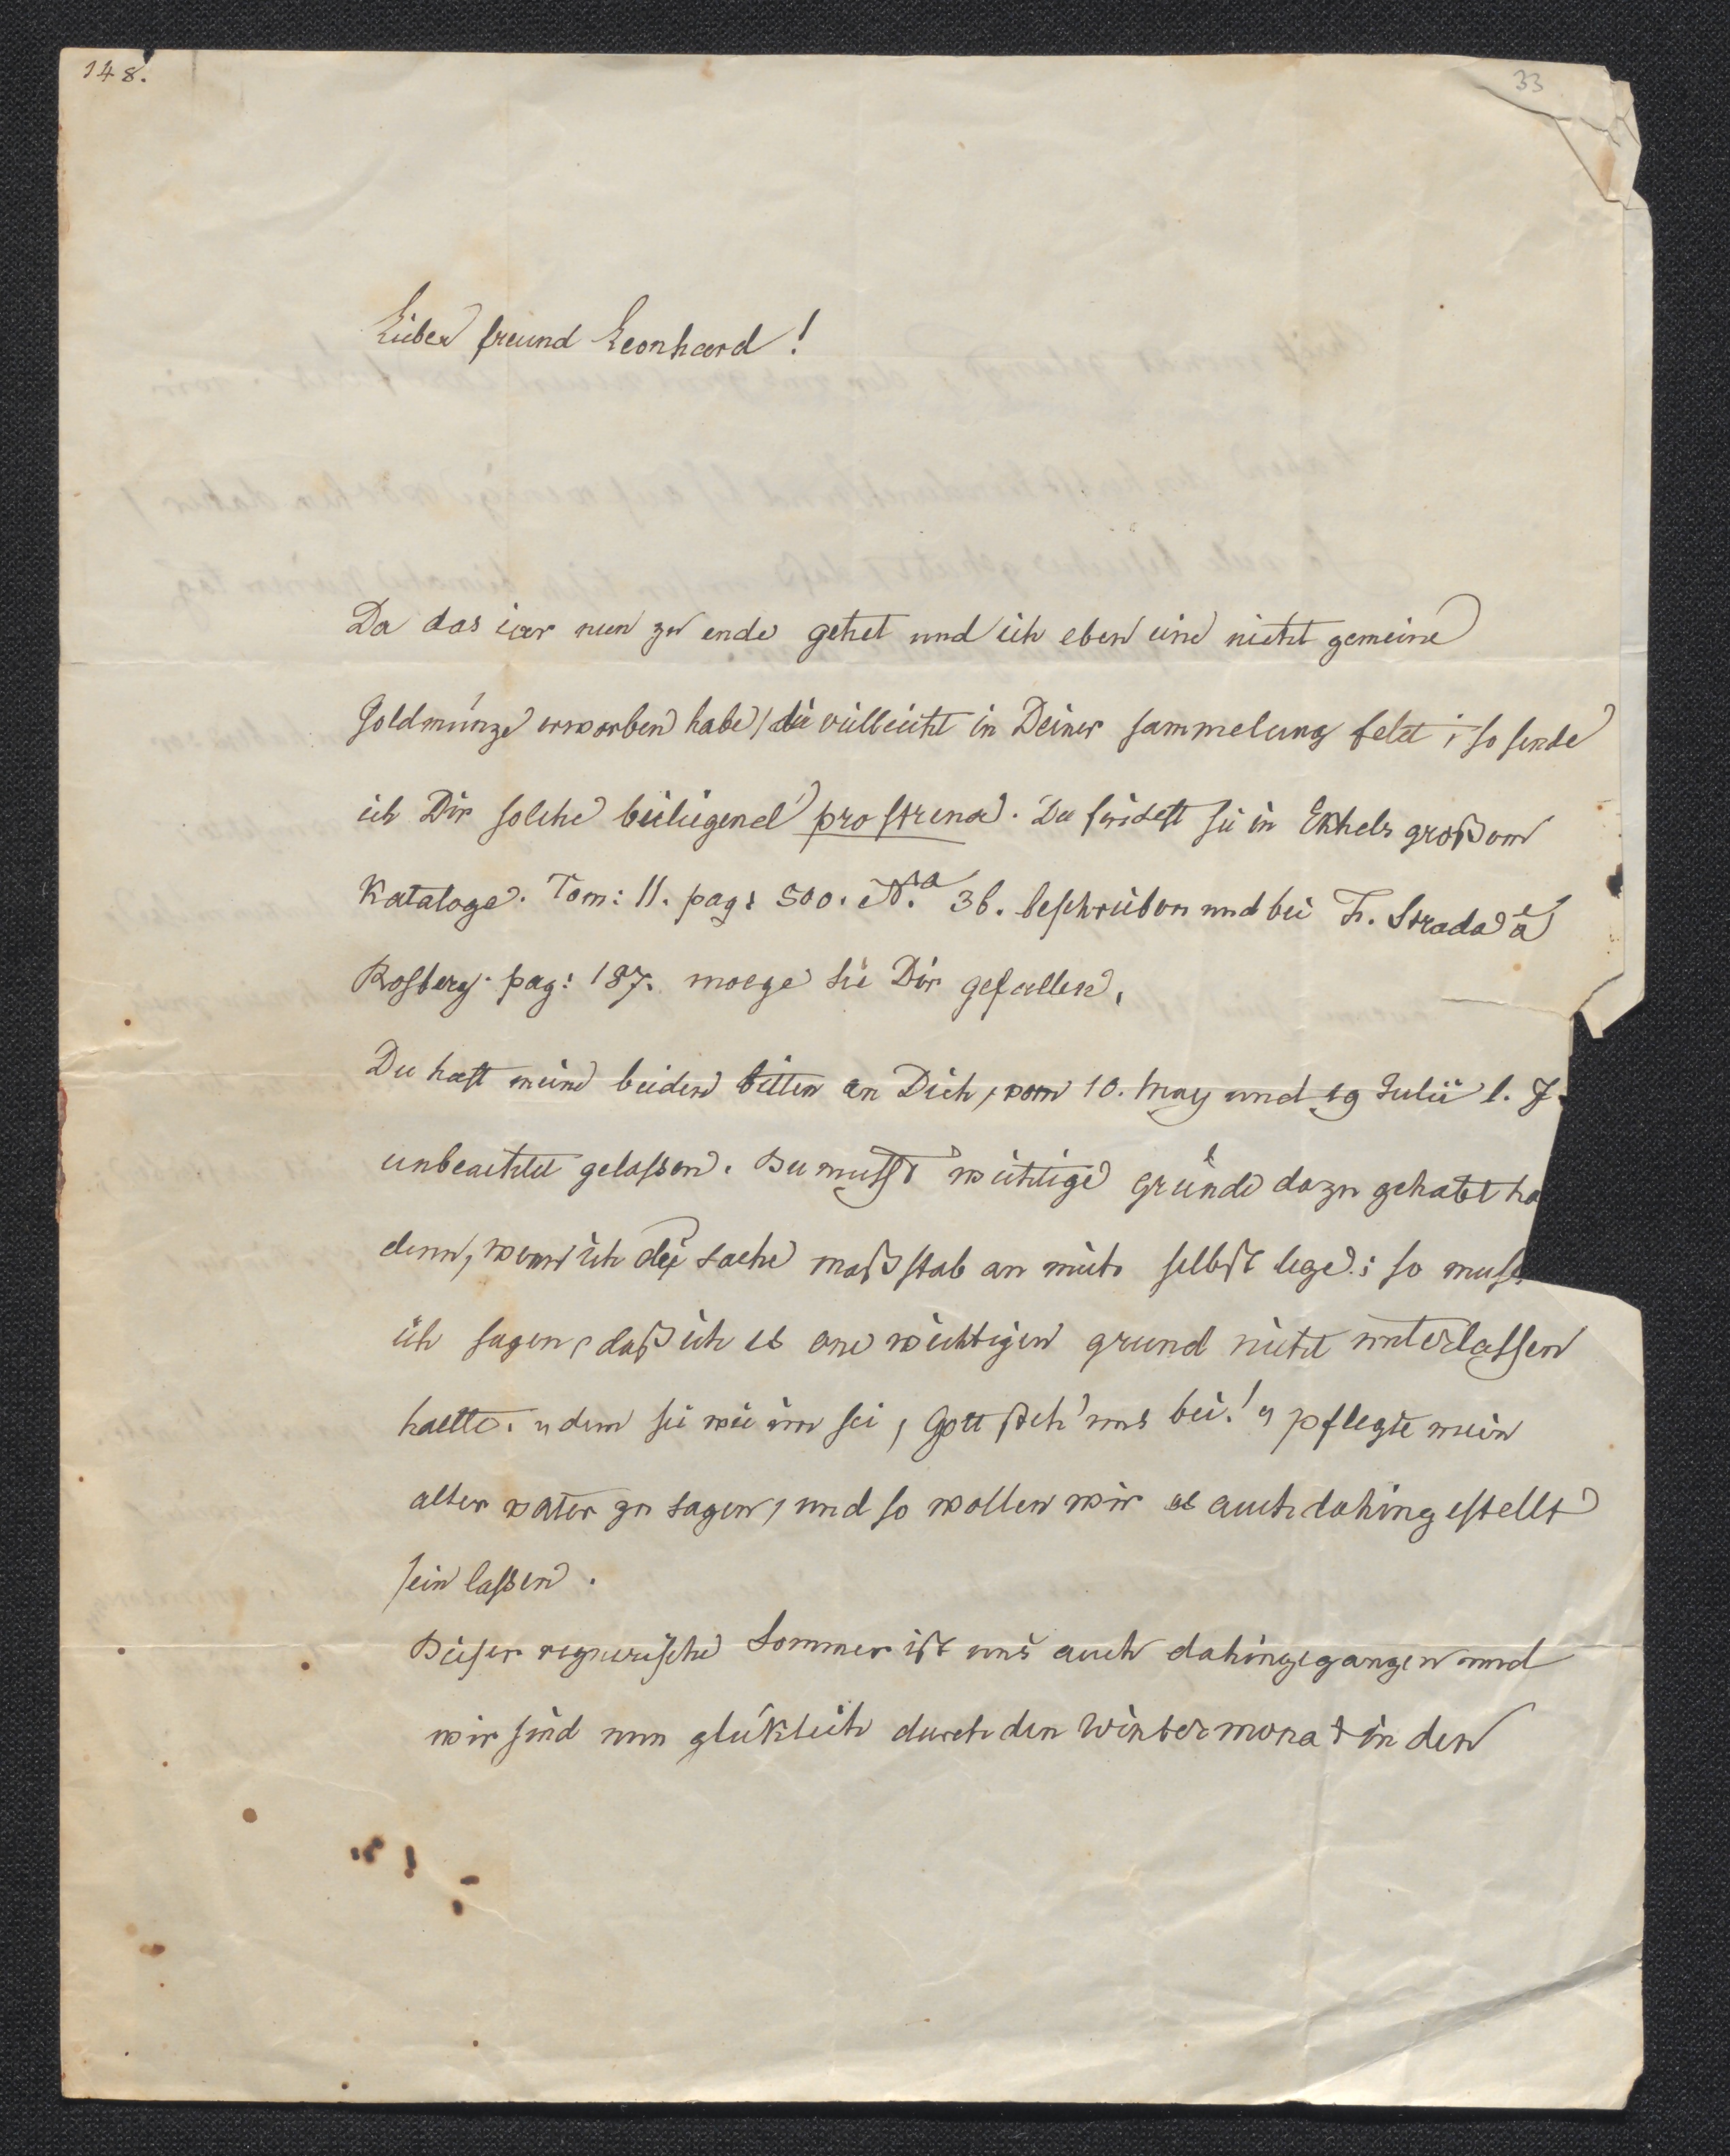 148.
33
Lieber freund Leonhard!
Da das iar nun zu ende gehet und ich eben eine nicht gemeine
Goldmünze erworben habe, die villeicht in Deiner sammelung felet; so sende
ich Dir solche beiligend pro strena. Du findest sie in Ekhels großem
Kataloge. Tom: II. pag: 500. N.ª 36. beschriben und bei F. Strada à
Rosberg. pag: 187. moege sie Dir gefallen.
Du hast meine beiden bitten an Dich, vom 10. May und 19 Julii l. J.
unbeachtet gelassen. Du musst wichtige gründe dazu gehabt ha
denn, wenn ich der sache maßstab an mich selbst lege; so muss
ich sagen, daß ich es one wichtigen grund nicht unterlassen
haette. „dem sei wie im sei, Gott steh' uns bei!" pflegte mein
alter vater zu sagen, und so wollen wir es auch dahingestellt
sein lassen.
Diser regnerische Sommer ist uns auch dahingegangen und
wir sind nun glüklich durch den Wintermonat in den